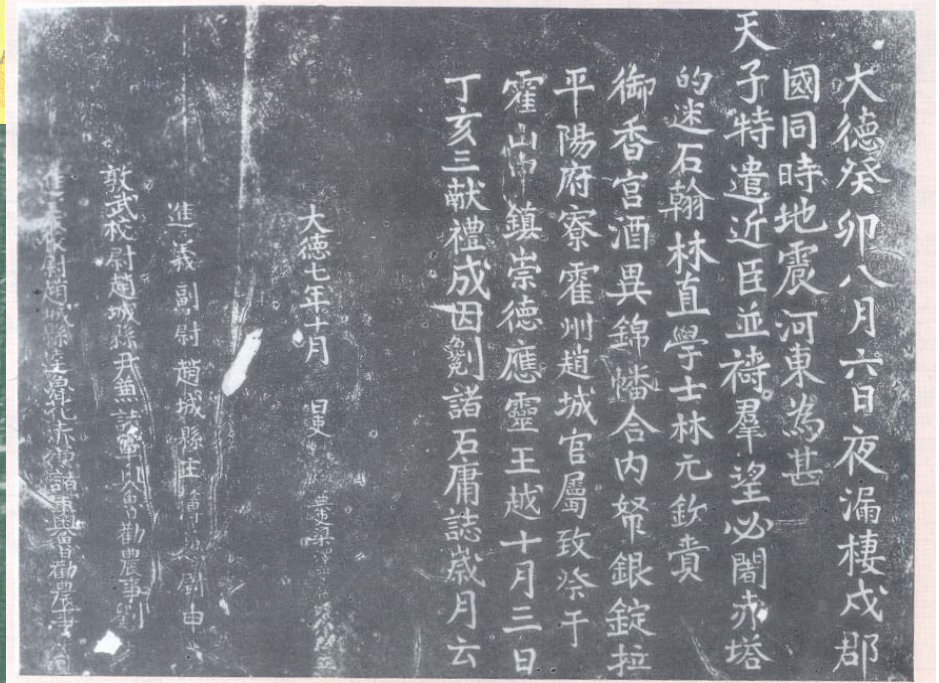 大德癸卯八月六日夜漏棲戍郡
國同時地震河東為甚
天子特遣近臣並禱羣望必闍赤塔
的迷石翰林直學士林元欽賫
御香宮酒異錦幡合內帑銀錠拉
平陽府寮霍州趙城官屬致祭于
霍山中鎮崇德應靈王越十月三日
丁亥三献禮成因刻諸石庸誌歲月云
大德七年十月
進義副尉趙城縣主簿
敦武校尉趙城縣尹兼諸軍奧魯勸農事劉
進義校尉趙城縣達魯花赤兼諸軍奧魯勸農事